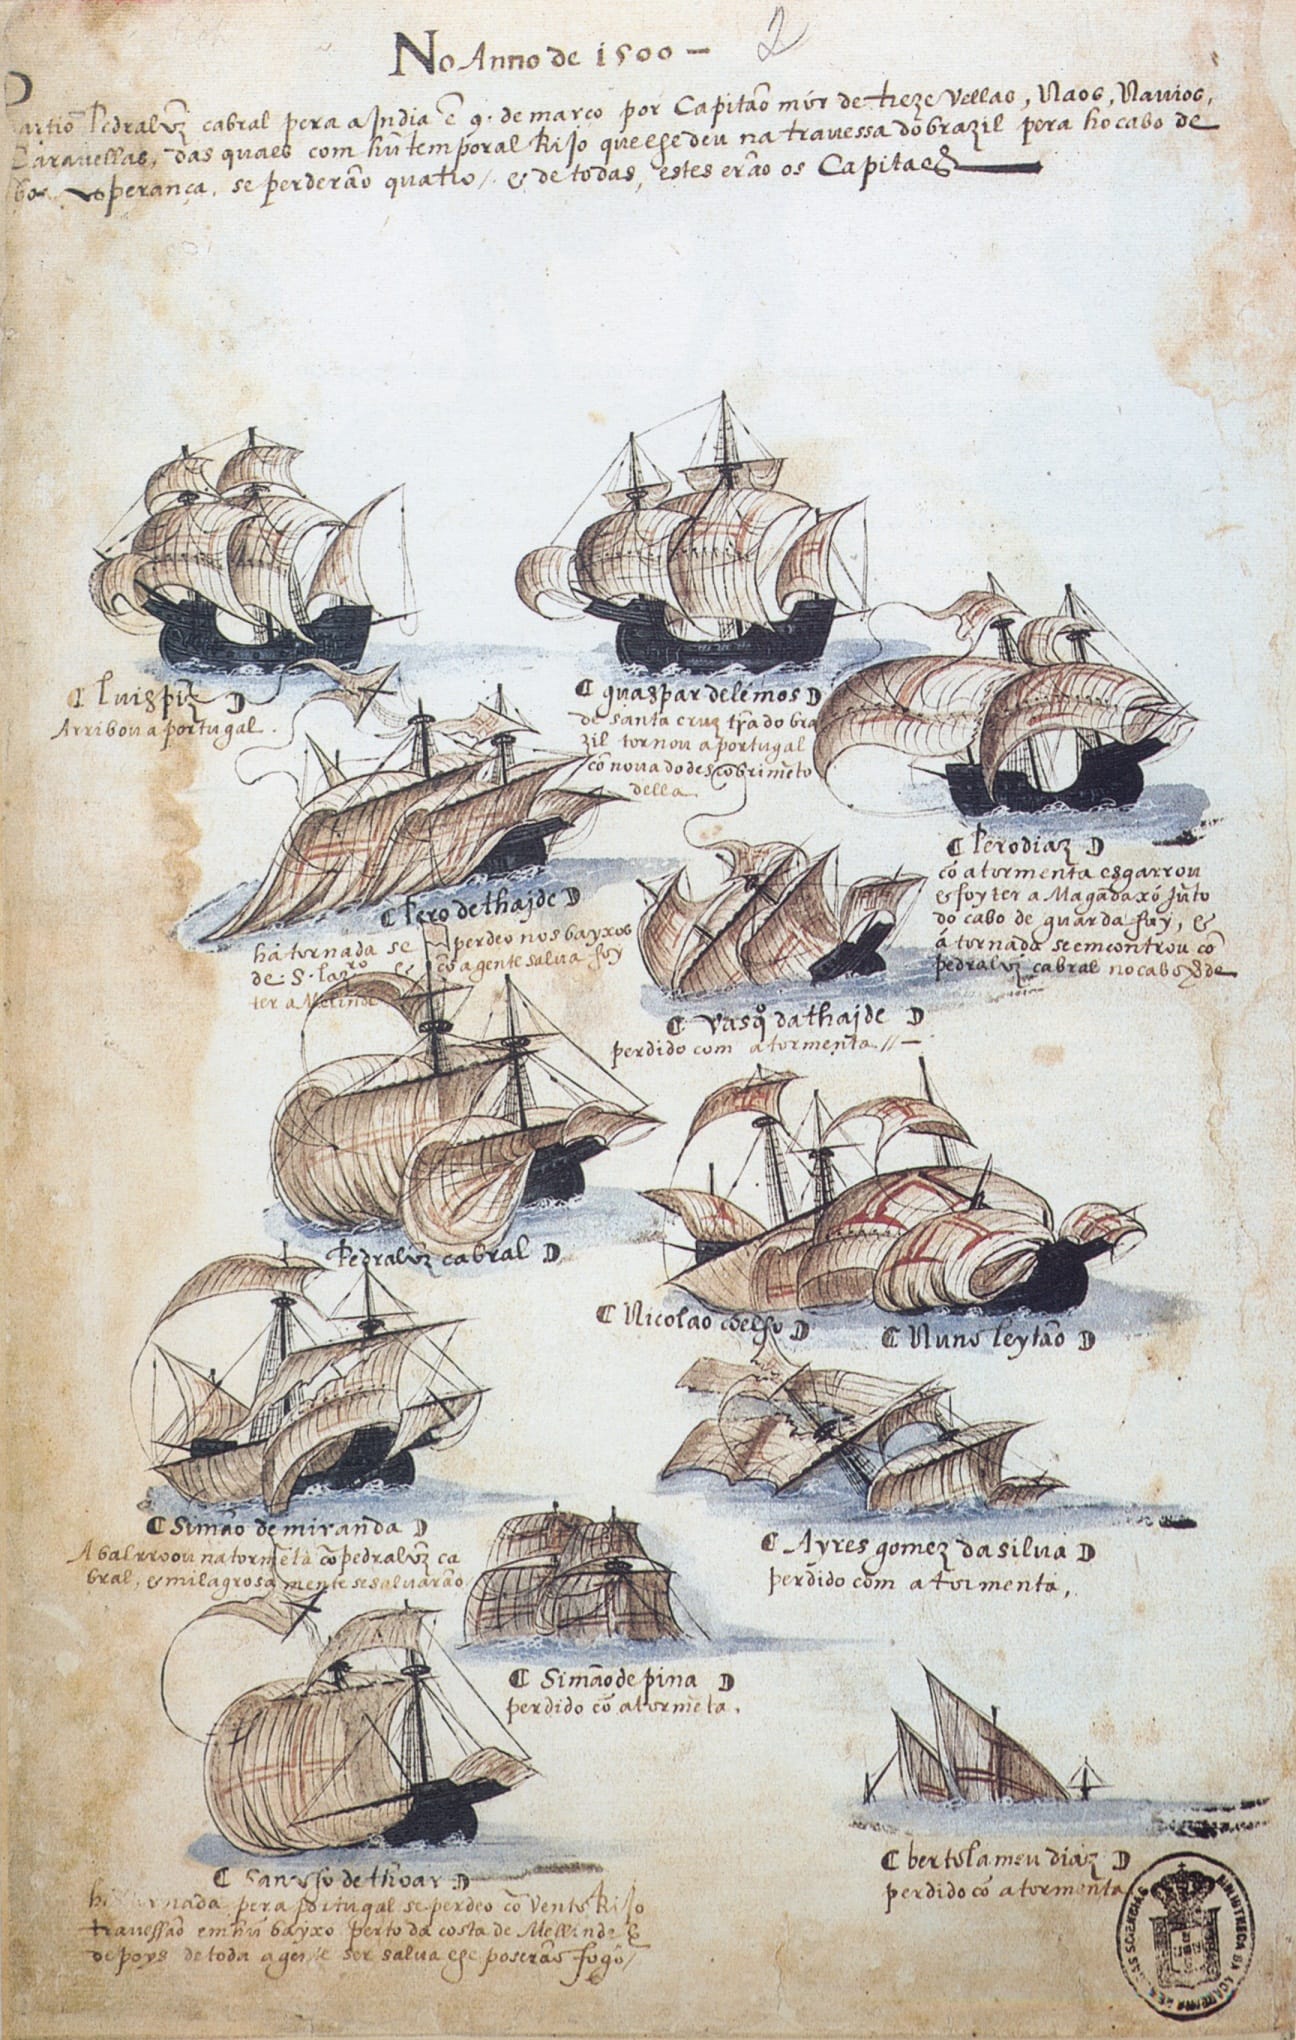 No Anno de 1500 — 2
Partio Pedralvz cabral pera a India ẽ 9. de março por Capitão mór de treze Vellas, Naos, Navios,
Caravellas, das quaes com hũ temporal Rijo que ese deu na travessa do brazil pera ho cabo de
boa sperança, se perderão quatro /. e de todas, estes erão os Capitaes
Luis piz
Arribou a portugal.
guaspar de lémos
de santa cruz tr̃a do bra
zil tornou a portugal
cõ nova do descobrimẽto
della
Pero diaz
cõ a tormenta esgarrou
e foy ter a Magadaxó Jũto
do cabo de guarda fuy, e
á tornada se emcontrou cõ
pedralvz cabral no cabo de
Pero de thajde
há tornada se perdeo nos bayxos
de: S. Lazro e cõ a gente salva foy
ter a Melinde
Vasqo dathajde
perdido com a tormenta //—
Pedralvz cabral
Nicolao coelho
Nuno leytão
Simão de miranda
Abalrroou na tormẽta cõ pedralvz ca
bral, e milagrosamente se salvarão
Ayres gomez da silva
perdido com a tormenta,.
Simão de pina
perdido cõ a tormẽta.
Sancho de thoar
há tornada pera portugal se perdeo cõ vento Rijo
travessão em hũ bayxo perto da costa de Mellinde e
depoys de toda a gente ser salva ese poserão fogo /
bertolameu diaz
perdido cõ a tormenta
BIBLIOTHECA DA ACADEMIA DAS SCIENCIAS